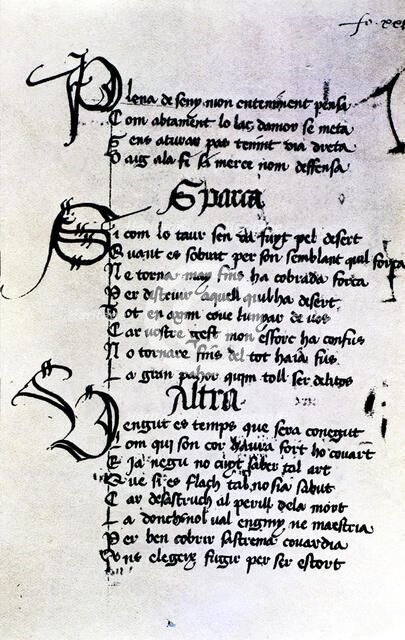 fo. xxi
Plena de seny mon enteniment pensa
Com abtament lo laç damor se meta
Sens aturar pas tenint via dreta
Vaig a la fi si merce nom deffensa
Sparça
Si com lo taur sen va fuyt pel desert
Quant es sobrat per son semblant quil força
Ne torna may fins ha cobrada força
Per destruir aquell quilha desert
Tot en axim cove lunyar de vos
Car vostre gest mon esforç ha confus
No tornare fins del tot haia fus
La gran pahor quim toll ser delitos
Altra
Vengut es temps que sera conegut
Lom qui son cor haura fort ho covart
E ja negu no cuyt saber tal art
Que si es flach tal no sia sabut
Car desastruch al perill dela mort
La donchs nol val enginy ne maestria
Per ben cobrir sa strema covardia
ne elegeix fugir per ser estort